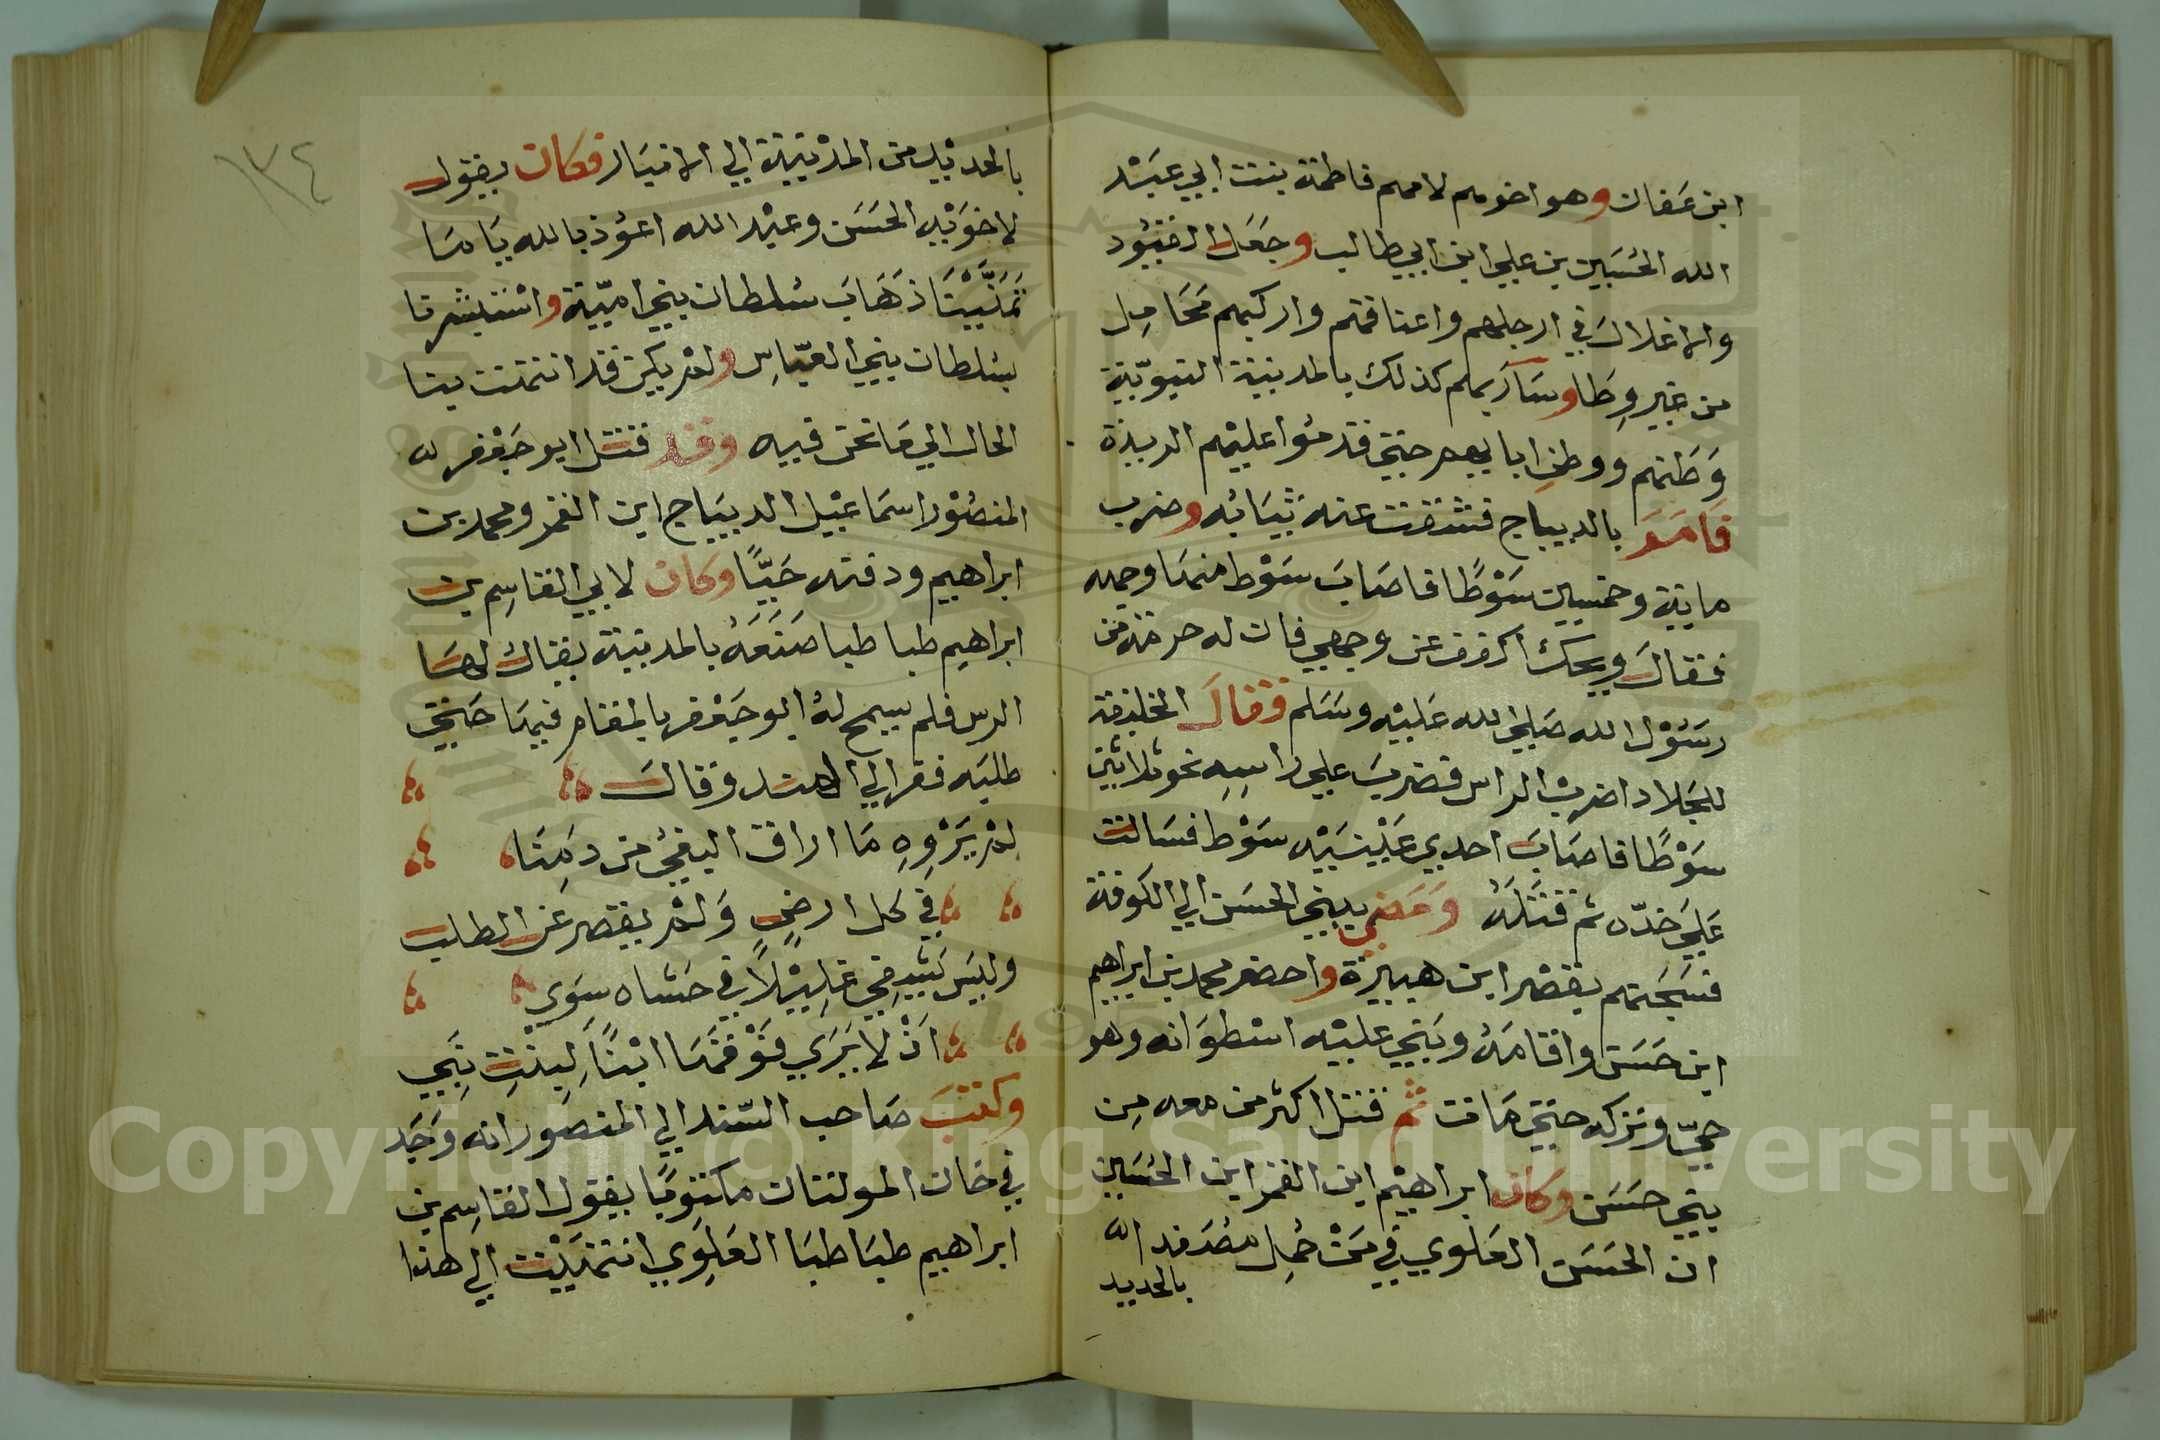 ابن عفان وهو اخوهم لامهم فاطمة بنت ابي عبد
الله الحسين بن علي ابن ابي طالب وجعل القيود
والاغلال في ارجلهم واعناقهم واركبهم محامل
من غير وطا وسار بهم كذلك بالمدينة النبوية
وطنهم ووطن ابايهم حتي قدموا عليهم الربذة
فامر بالديباج فشققت عنه ثيابه وضرب
ماية وخمسين سوطا فاصاب سوط منها وجهه
فقال ويحك اكفف عن وجهي فان له حرمة من
رسول الله صلي الله عليه وسلم فقال الخليفة
للجلاد اضرب الراس فضرب علي راسه نحو ثلاثين
سوطا فاصاب احدي عينيه سوط فسالت
علي خده ثم قتله ومضي ببني الحسن الي الكوفة
فسجنهم بقصر ابن هبيرة واحضر محمد بن ابراهيم
ابن حسن واقامه وبني عليه اسطوانه وهو
حي وتركه حتي مات ثم قتل اكثر من معه من
بني حسن وكان ابراهيم ابن الغمر ابن الحسين
ان الحسن العلوي في من حمل مصفد الله
بالحديد
١٣٤
بالحديد من المدينة الي الانبار فكان يقول
لاخويه الحسن وعبد الله اعوذ بالله يا منا
تمنينا ذهاب سلطان بني امية واستبشرنا
بسلطان بني العباس ولم يكن قد انتهت بنا
الحال الي ما نحن فيه وقد قتل ابو جعفر
المنصور اسماعيل الديباج ابن الغمر ومحمد بن
ابراهيم ودفنه حيا وكان لابي القاسم بن
ابراهيم طبا طبا ضيعه بالمدينة يقال لها
الرس فلم يسمح له ابو جعفر بالمقام فيها حتي
طلبه ففر الي الهند وقال
لم يروه ما اراق البغي من دمنا
في كل ارض ولم يقصر عن الطلب
وليس يشفي غليلا في حشاه سوي
ان لا يري فوقها ابنا لبنت نبي
وكتب صاحب السند الي المنصور انه وجد
في خان المولتان مكتوبا يقول القاسم بن
ابراهيم طبا طبا العلوي انتهيت الي هذا
Copyright © King Saud University
1957